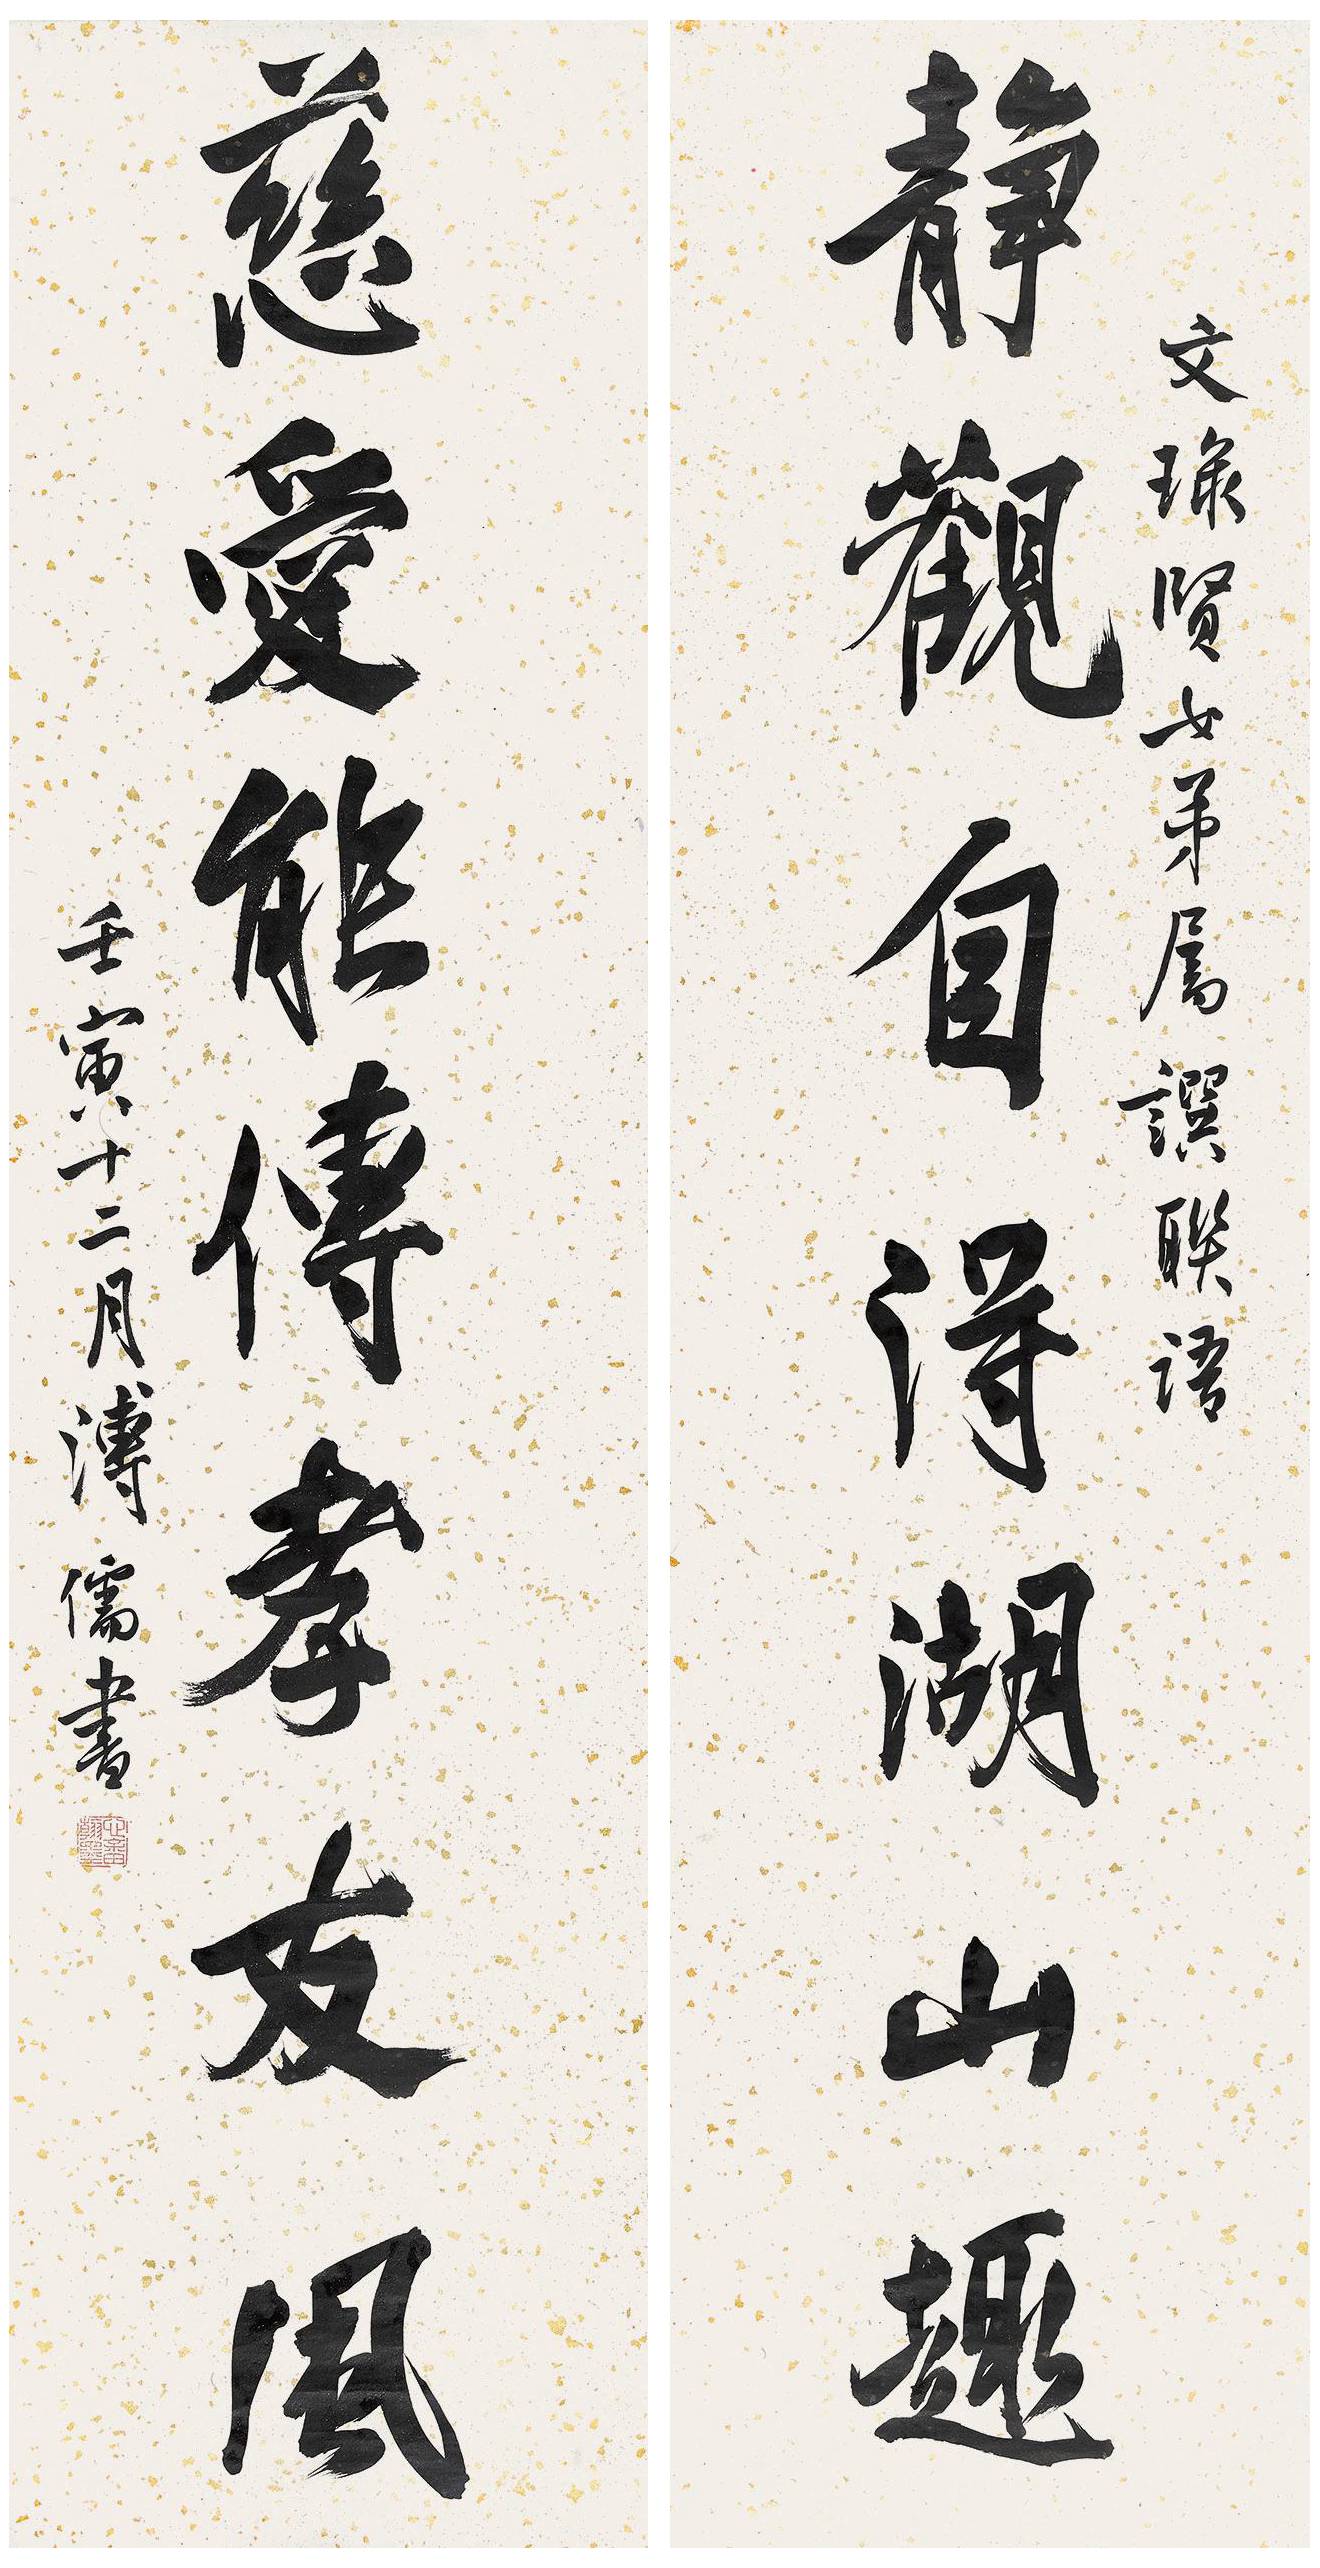 文璪賢女弟屬譔聯語
靜觀自得湖山趣
慈愛能傳孝友風
壬寅十二月溥儒書